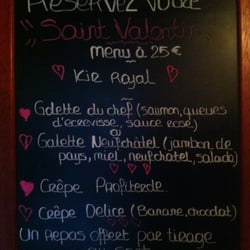 RESERVEZ VOTRE
Saint Valentin
menu à 25€
Kir Royal
Galette du chef (saumon, queues
d'ecrevisse, sauce rosé)
ou
Galette Neufchâtel (jambon de
pays, miel, neufchâtel, salade)
Crêpe Profiterole
Crêpe Delice (Banane, chocolat)
Un Repas offert par tirage
au sort